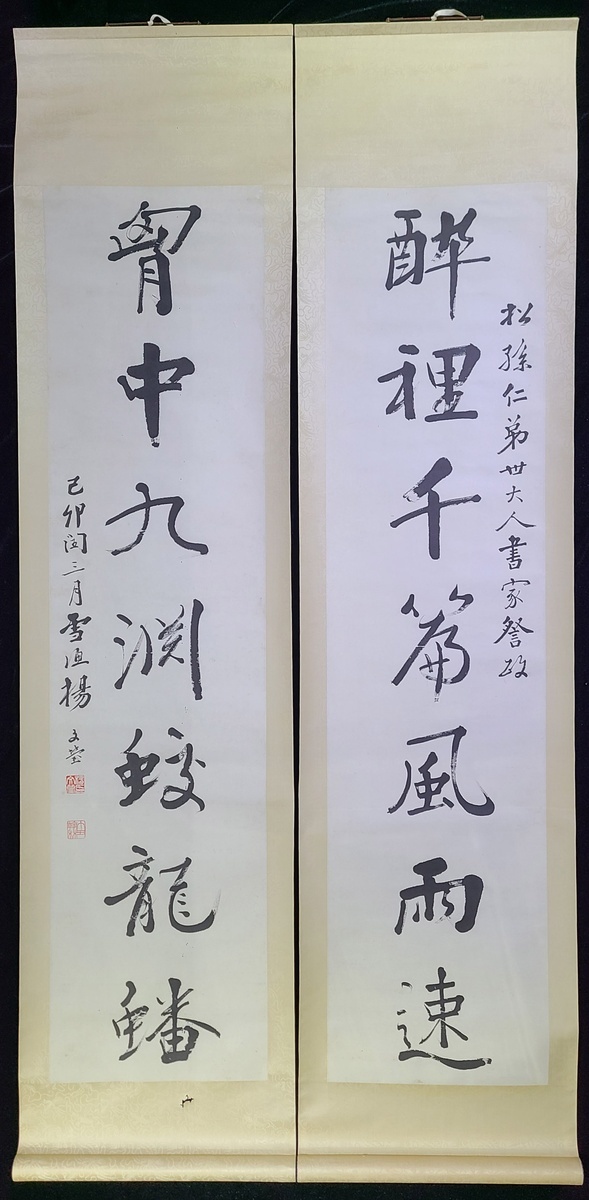 松孫仁弟世大人書家詧政
醉裡千篇風雨速
胷中九淵蛟龍蟠
己卯閏三月雪漁揚文瑩